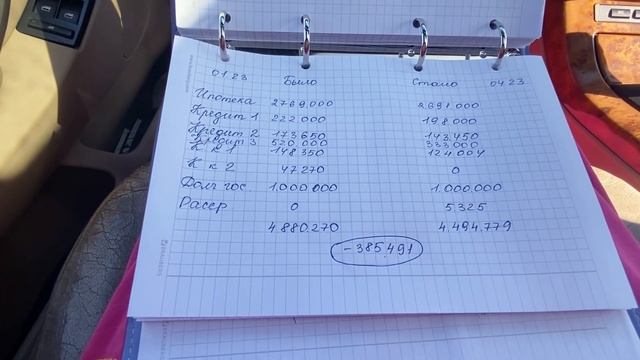 01.23 Было Стало 04.23
Ипотека 2769.000 2691.000
Кредит 1 222.000 198.000
Кредит 2 173.650 143.450
Кредит 3 520.000 333.000
К к 1 148350 124004
К к 2 47270 0
Долг гос. 1.000.000 1.000.000
Расср 0 5.325
4.880.270 4.494.779
-385.491